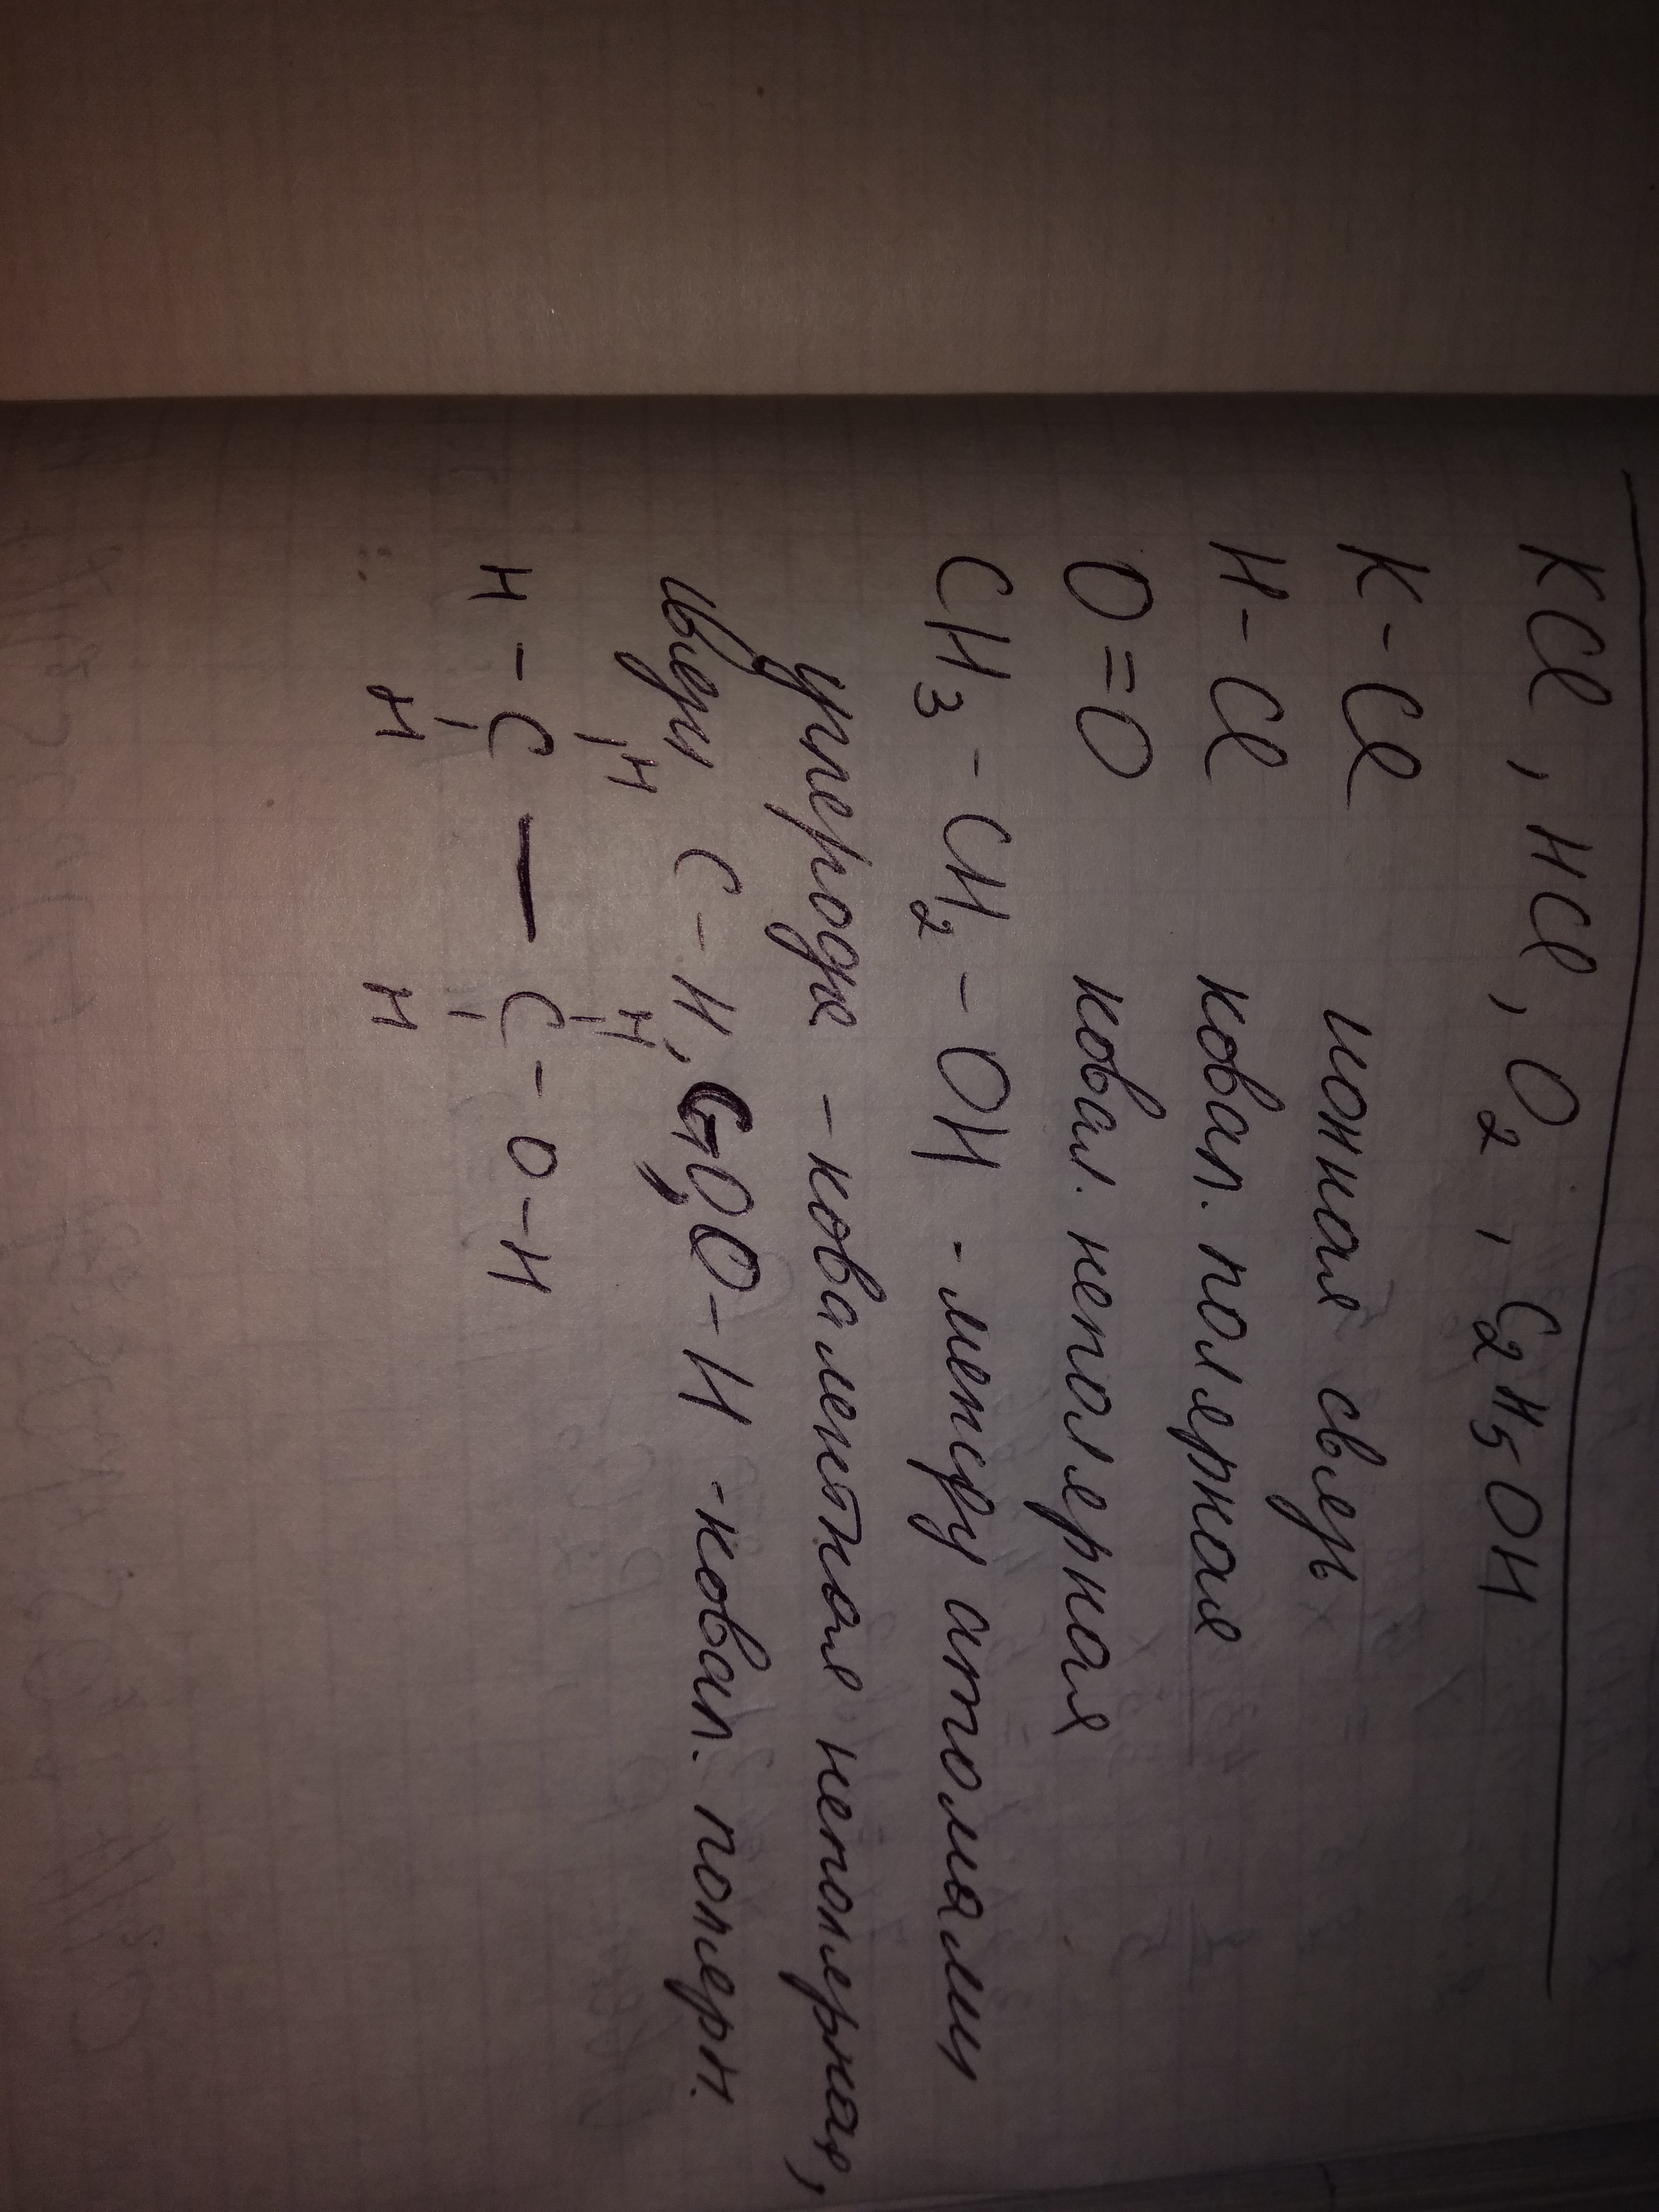 KCl, HCl, O2, C2H5OH
K-Cl ионная связь
H-Cl ковал. полярная
O=O ковал. неполярная
CH3-CH2-OH - между атомами
углерода - ковалентная неполярная,
связи C-H, C-O, O-H - ковал. полярн.
H H
H-C—C-O-H
H H